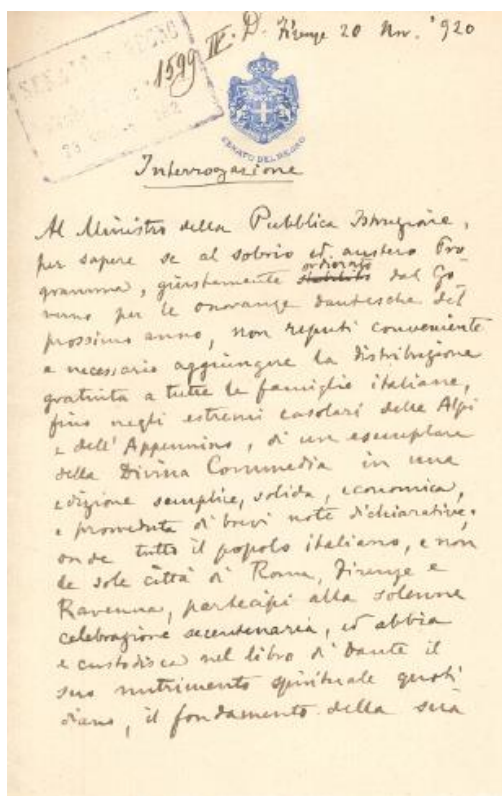 SENATO DEL REGNO
1599 IV. D. Firenze 20 Nov. '920
SENATO DEL REGNO
Interrogazione
Al Ministro della Pubblica Istruzione,
per sapere se al sobrio ed austero Pro
gramma, giustamente ordinato dal Go-
verno per le onoranze dantesche del
prossimo anno, non reputi conveniente
e necessario aggiungere la distribuzione
gratuita a tutte le famiglie italiane,
fino negli estremi casolari delle Alpi
e dell'Appennino, di un esemplare
della Divina Commedia in una
edizione semplice, solida, economica,
e proveduta di brevi note dichiarative;
onde tutto il popolo italiano, e non
le sole città di Roma, Firenze e
Ravenna, partecipi alla solenne
celebrazione secentenaria, ed abbia
e custodisca nel libro di Dante il
suo nutrimento spirituale quoti
diano, il fondamento della sua